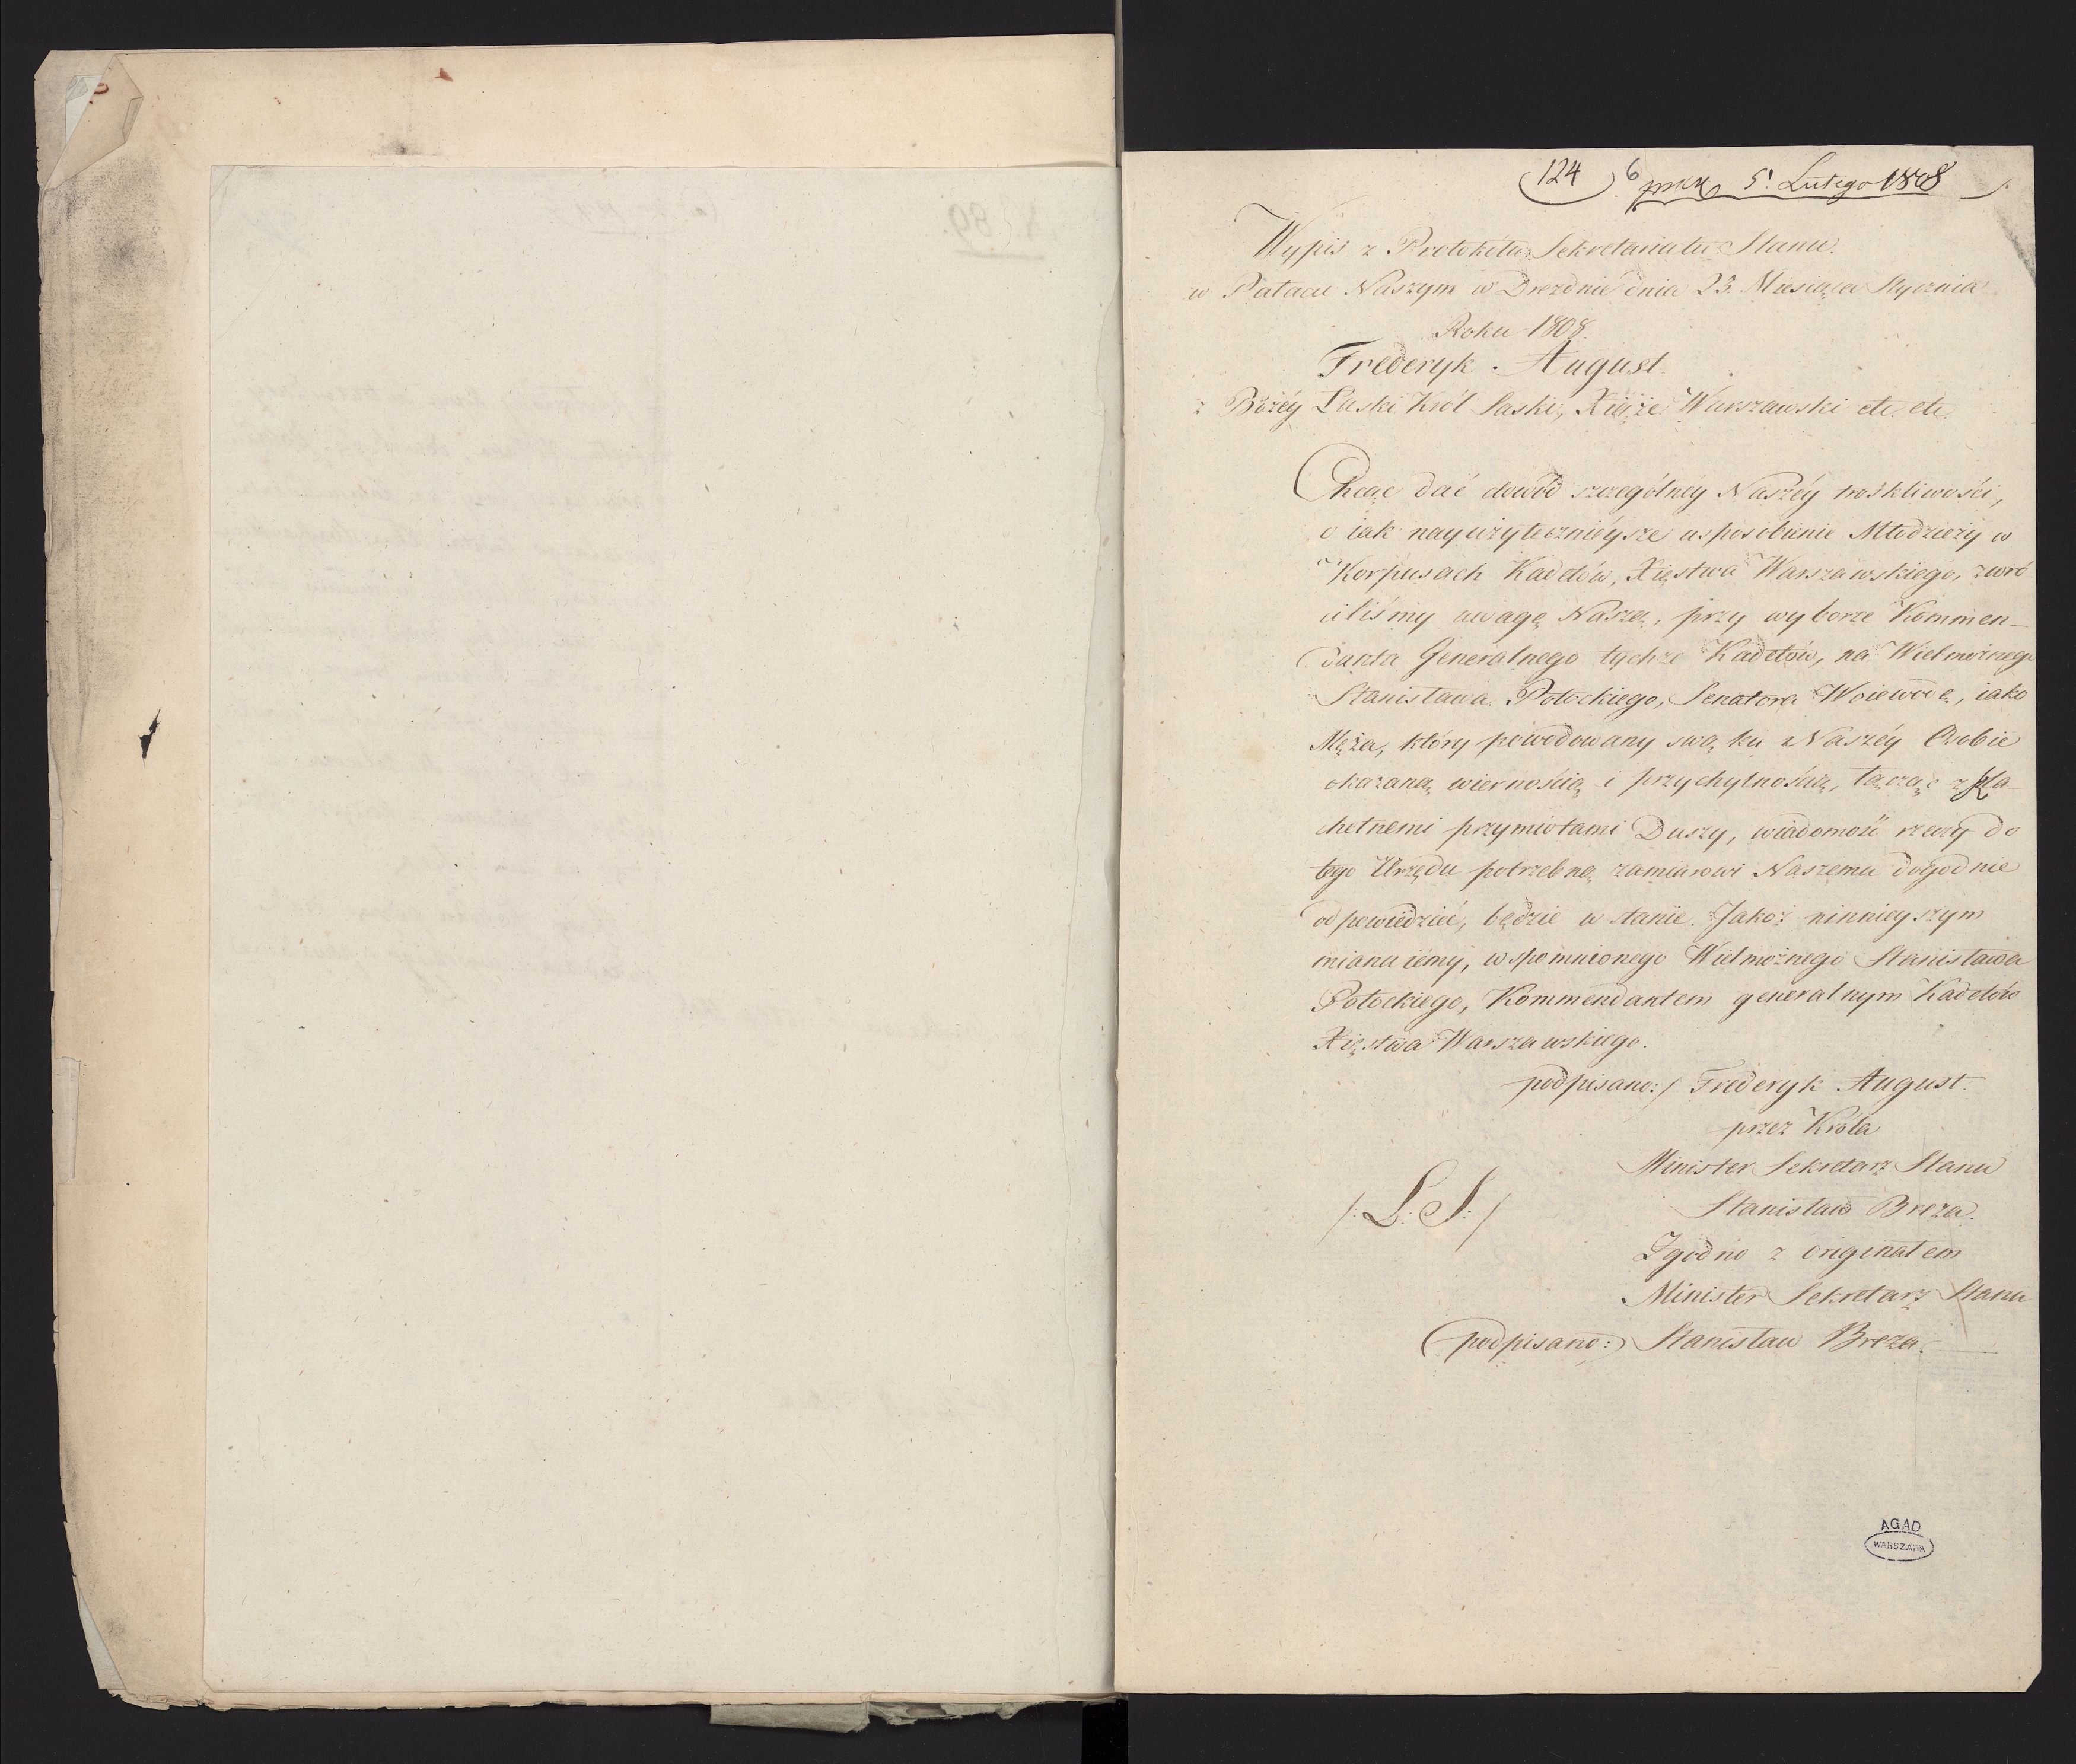 (124) 6 5. Lutego 1808
Wypis z Protokółu Sekretariatu Stanu.
w Pałacu Naszym w Dreznie dnia 23. Miesiąca Stycznia
Roku 1808.
Frederyk August
z Bożéy Łaski Król Saski, Xiąże Warszawski etc. etc.
Chcąc dać dowód szczególnéy Naszéy troskliwości,
o iak nayużytecznieysze usposobienie Młodzieży w
Korpusach Kadetów, Xięstwa Warszawskiego, zwró
ciliśmy uwagę Naszą, przy wyborze Kommen-
danta Generalnego tychże Kadetów, na Wielmożnego
Stanisława Potockiego, Senatora Woiewodę, iako
Męża, który powodowany swą ku Naszéy Osobie
okazaną wiernością i przychylnością, łącząc z szla-
chetnemi przymiotami Duszy, wiadomość rzeczy do
tego Urzędu potrzebną zamiarowi Naszemu dogodnie
odpowiedzieć, będzie w stanie. Jakoż ninnieyszym
mianuiemy, wspomnionego Wielmożnego Stanisława
Potockiego, Kommendantem generalnym Kadetów
Xięstwa Warszawskiego.
podpisano:/ Frederyk August.
przez Króla
Minister Sekretarz Stanu
/: L. S: / Stanisław Breza.
Zgodno z originałem
Minister Sekretarz Stanu
(podpisano:) Stanisław Breza.
AGAD
WARSZAWA